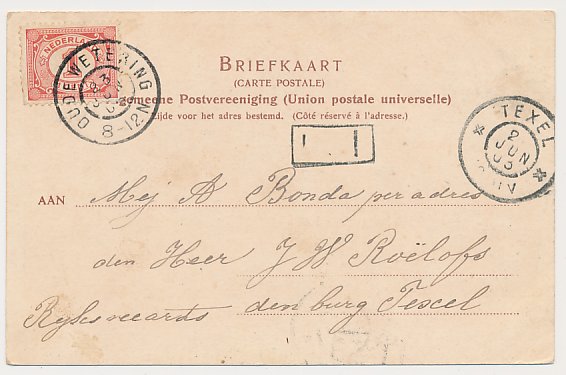 NEDERLAND
OUDE WETERING
8-12N
BRIEFKAART
(CARTE POSTALE)
gemeene Postvereeniging (Union postale universelle)
Zijde voor het adres bestemd. (Côté réservé à l'adresse.)
TEXEL
2
JUN
03
AAN Mej A Bonda per adres
den Heer J W Roëlofs
den burg Texel